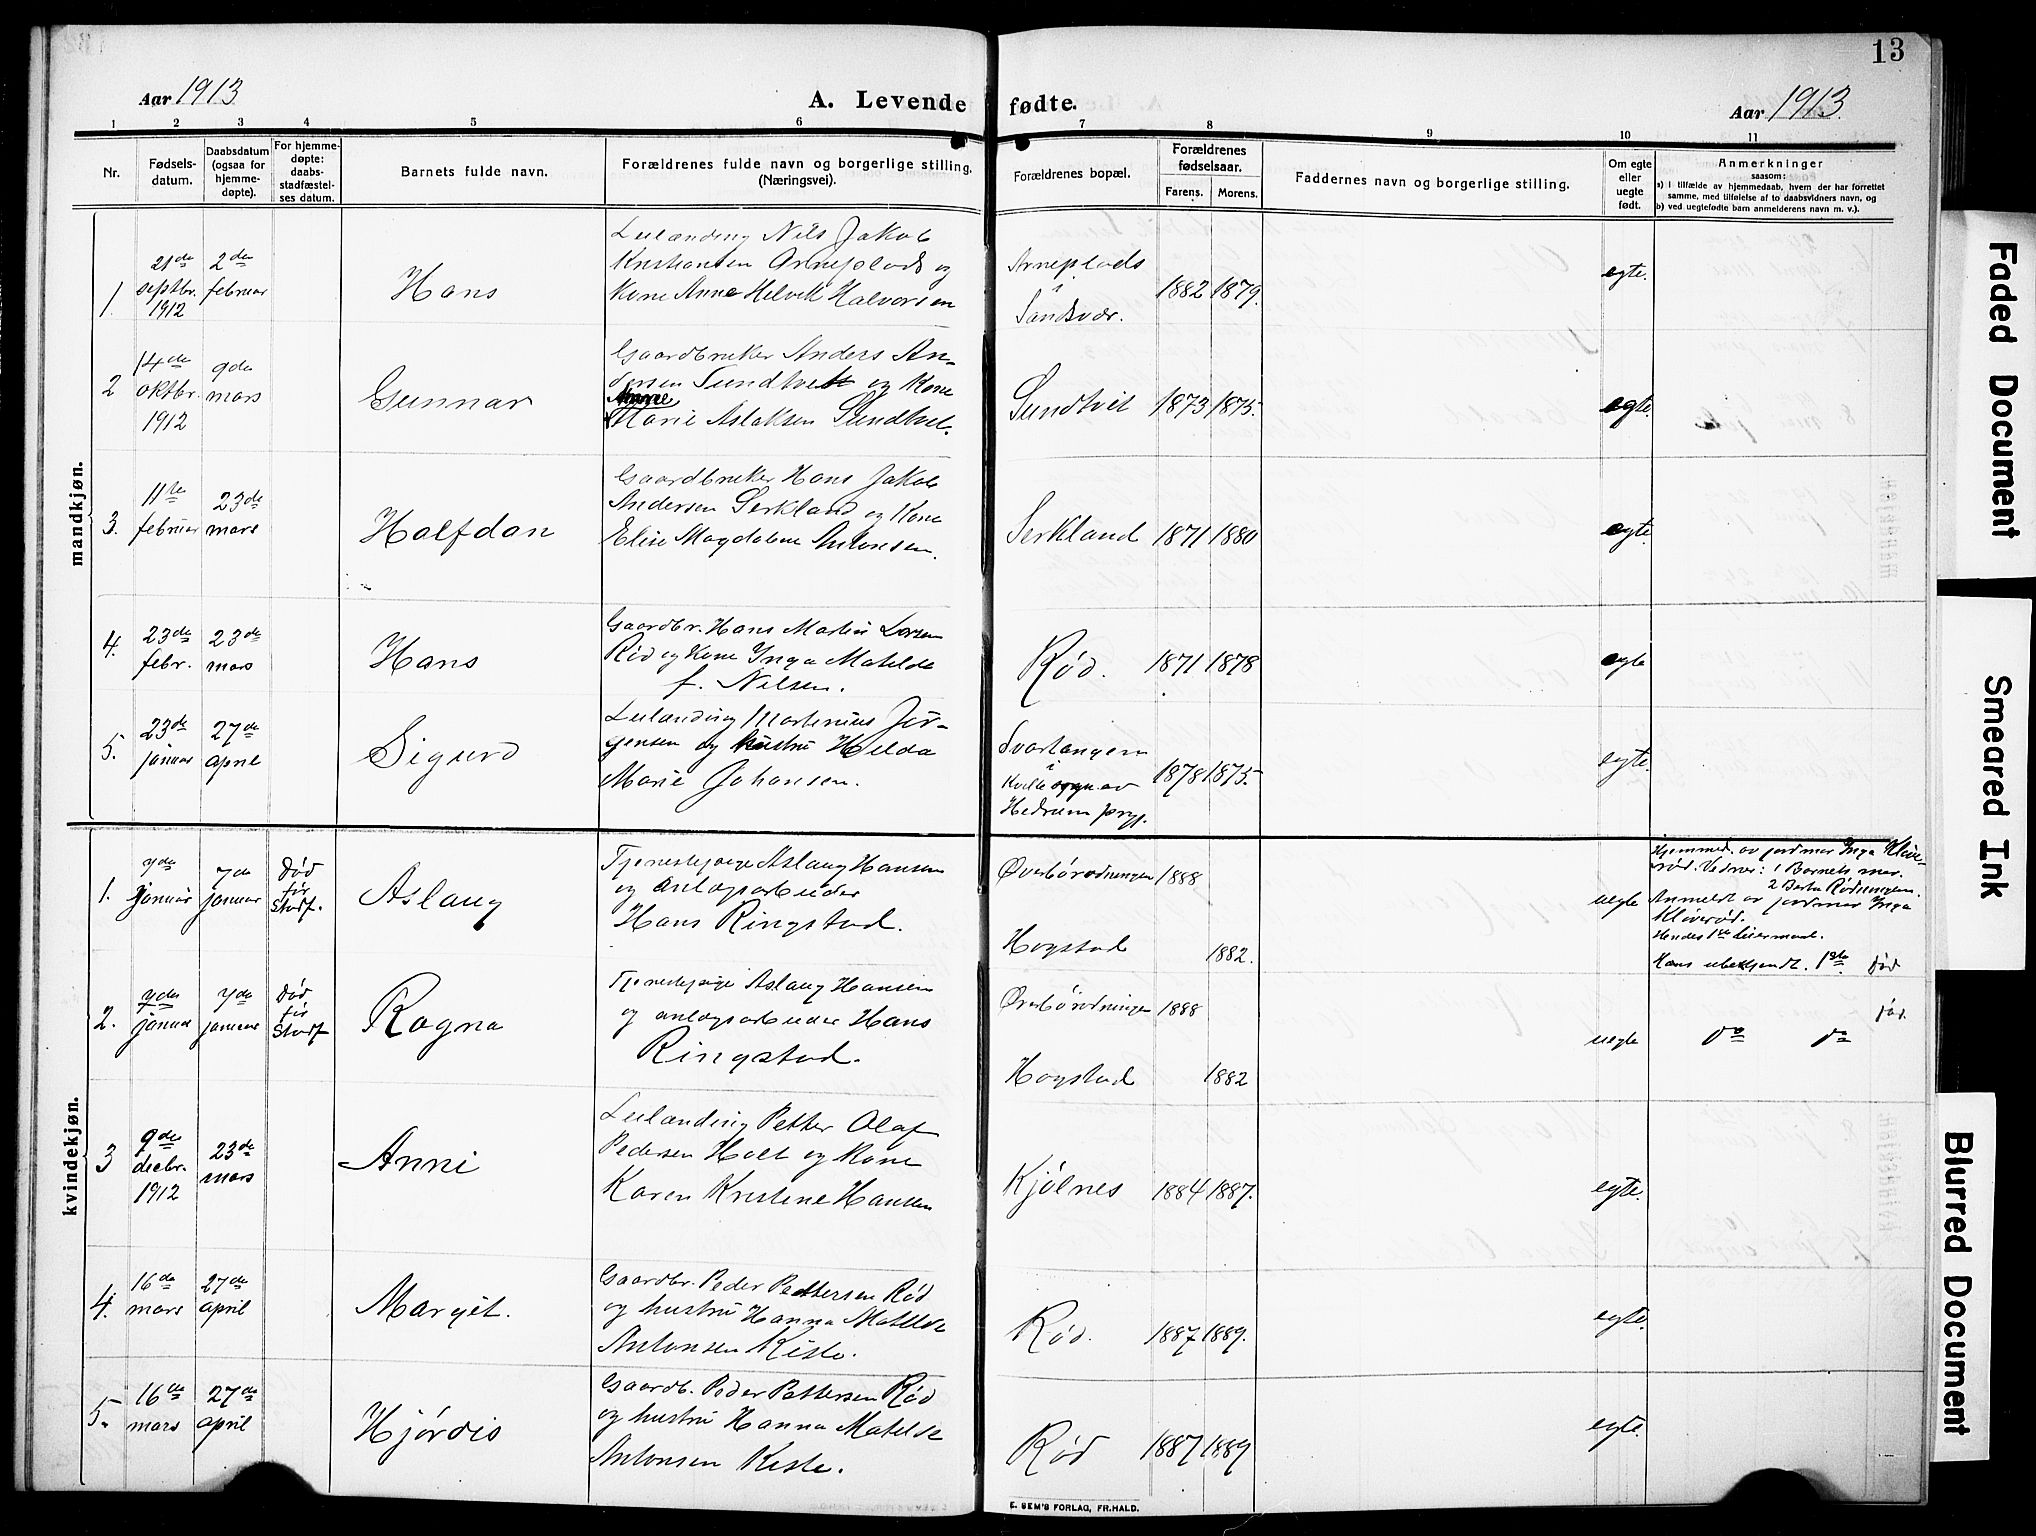 13
Aar 1913
A. Levende fødte.
Aar 1913.
1 2 3 4 5 6 7 8 9 10 11
Nr.
Fødsels-
datum.
Daabsdatum
(ogsaa for
hjemme-
døpte).
For hjemme-
døpte:
daabs-
stadfæstel-
ses datum.
Barnets fulde navn.
Forældrenes fulde navn og borgerlige stilling.
(Næringsvei).
Forældrenes bopæl.
Forældrenes
fødselsaar.
Farens. Morens.
Faddernes navn og borgerlige stilling.
Om egte
eller
uegte
født.
Anmerkninger
saasom:
a) i tilfælde av hjemmedaab, hvem der har forrettet
samme, med tilføielse af to daabsvidners navn, og
b) ved uegtefødte barn anmelderens navn m. v.).
mandkjøn.
1.
21de
septbr.
1912
2den
februar
Hans
Leilænding Nils Jakob
Kristiansen Arneplads og
Kone Anne Helvik Halvorsen
Arneplads
i
Sandsvær.
1882 1879.
egte.
2
14de
oktbr.
1912
9de
mars
Gunnar
Gaardbruker Anders An-
dersen Sundtvet og Kone
Anne
Marie Aslaksen Sundtvet.
Sundtvet
1873 1875.
egte.
3.
11te
februar
23de
mars
Halfdan
Gaardbruker Hans Jakob
Andersen Serkland og Kone
Elise Magdalene Antonsen.
Serkland
1871 1880
egte.
4.
23de
febr.
23de
mars
Hans
Gaardbr. Hans Martin Larsen
Rød og Kone Inga Matilde
f. Nilsen.
Rød.
1871 1878
egte
5.
23de
januar
27de
april
Sigurd
Leilænding Martinius Jør-
gensen og hustru Helda
Marie Johansen.
Svartangen
i
Kvelle sogn av
Hedrum prgj.
1878 1875.
egte.
kvindekjøn.
1.
7de
januar
7de
januar
Død
før
Stadf.
Aslaug
Tjenestepige Aslaug Hansen
og anlægsarbeider
Hans Ringstad.
Øverbørødningen 1888
Hogstad
1882.
uegte
Hjemmed. av jordmor Inga Kløve-
rød. Vidner: 1 Barnets mor.
2 Berta Rødningen.
Anmeldt av jordmor Inga
Kløverød.
Hendes 1ste leiermaal.
Hans ubekjendt. 1ste død
2.
7de
januar
7de
januar
Død
før
Stadf
Ragna
Tjenestepige Aslaug Hansen
og anlægsarbeider Hans
Ringstad.
Øverbørødningen 1888
Hogstad
1882
uegte
død.
do do
3
9de
decbr.
1912
23de
mars
Anni
Leilænding Petter Olaf
Pedersen Holt og Kone
Karen Kristine Hansen
Kjølnes
1884 1887.
egte.
4.
16de
mars
27de
april
Margit.
Gaardbr. Peder Pettersen Rød
og hustru Hanna Matilde
Antonsen Kiste.
Rød.
1887 1889.
egte.
5.
16de
mars
27de
april
Hjørdis
Gaardb. Peder Pettersen Rød
og hustru Hanna Matilde
Antonsen Kiste.
Rød
1887 1889
egte.
E. SEM'S FORLAG, FR.HALD.
Faded Document
Smeared Ink
Blurred Document